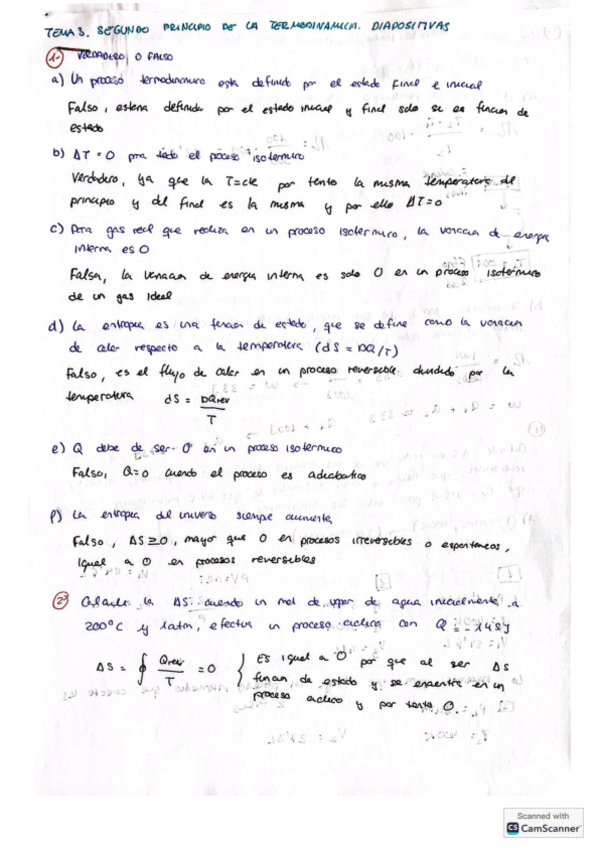 TEMA 3. SEGUNDO PRINCIPIO DE LA TERMODINAMICA. DIAPOSITIVAS
1- VERDADERO O FALSO
a) Un proceso termodinamico esta definido por el estado final e inicial
Falso, estaria definido por el estado inicial y final solo si es funcion de
estado
b) ΔT = 0 para todo el proceso isotermico
Verdadero, ya que la T=cte por tanto la misma temperatura del
principio y del final es la misma y por ello ΔT=0
c) Para gas real que realiza en un proceso isotermico, la variacion de energia
interna es 0
Falsa, la variacion de energia interna es solo 0 en un proceso isotermico
de un gas ideal
d) La entropia es una funcion de estado, que se define como la variacion
de calor respecto a la temperatura (dS = DQ/T)
Falso, es el flujo de calor en un proceso reversible dividido por la
temperatura dS = DQrev / T
e) Q debe de ser 0 en un proceso isotermico
Falso, Q=0 cuando el proceso es adiabatico
f) La entropia del universo siempre aumenta
Falso, ΔS ≥ 0, mayor que 0 en procesos irreversibles o espontaneos,
igual a 0 en procesos reversibles
2- Calcule la ΔS cuando un mol de vapor de agua inicialmente a
200°C y 1atm, efectua un proceso ciclico con Q = -145J
ΔS = ∮ Qrev / T = 0 { Es igual a 0 por que al ser ΔS
funcion de estado y se encuentra en un
proceso ciclico y por tanto 0.
Scanned with
CS CamScanner